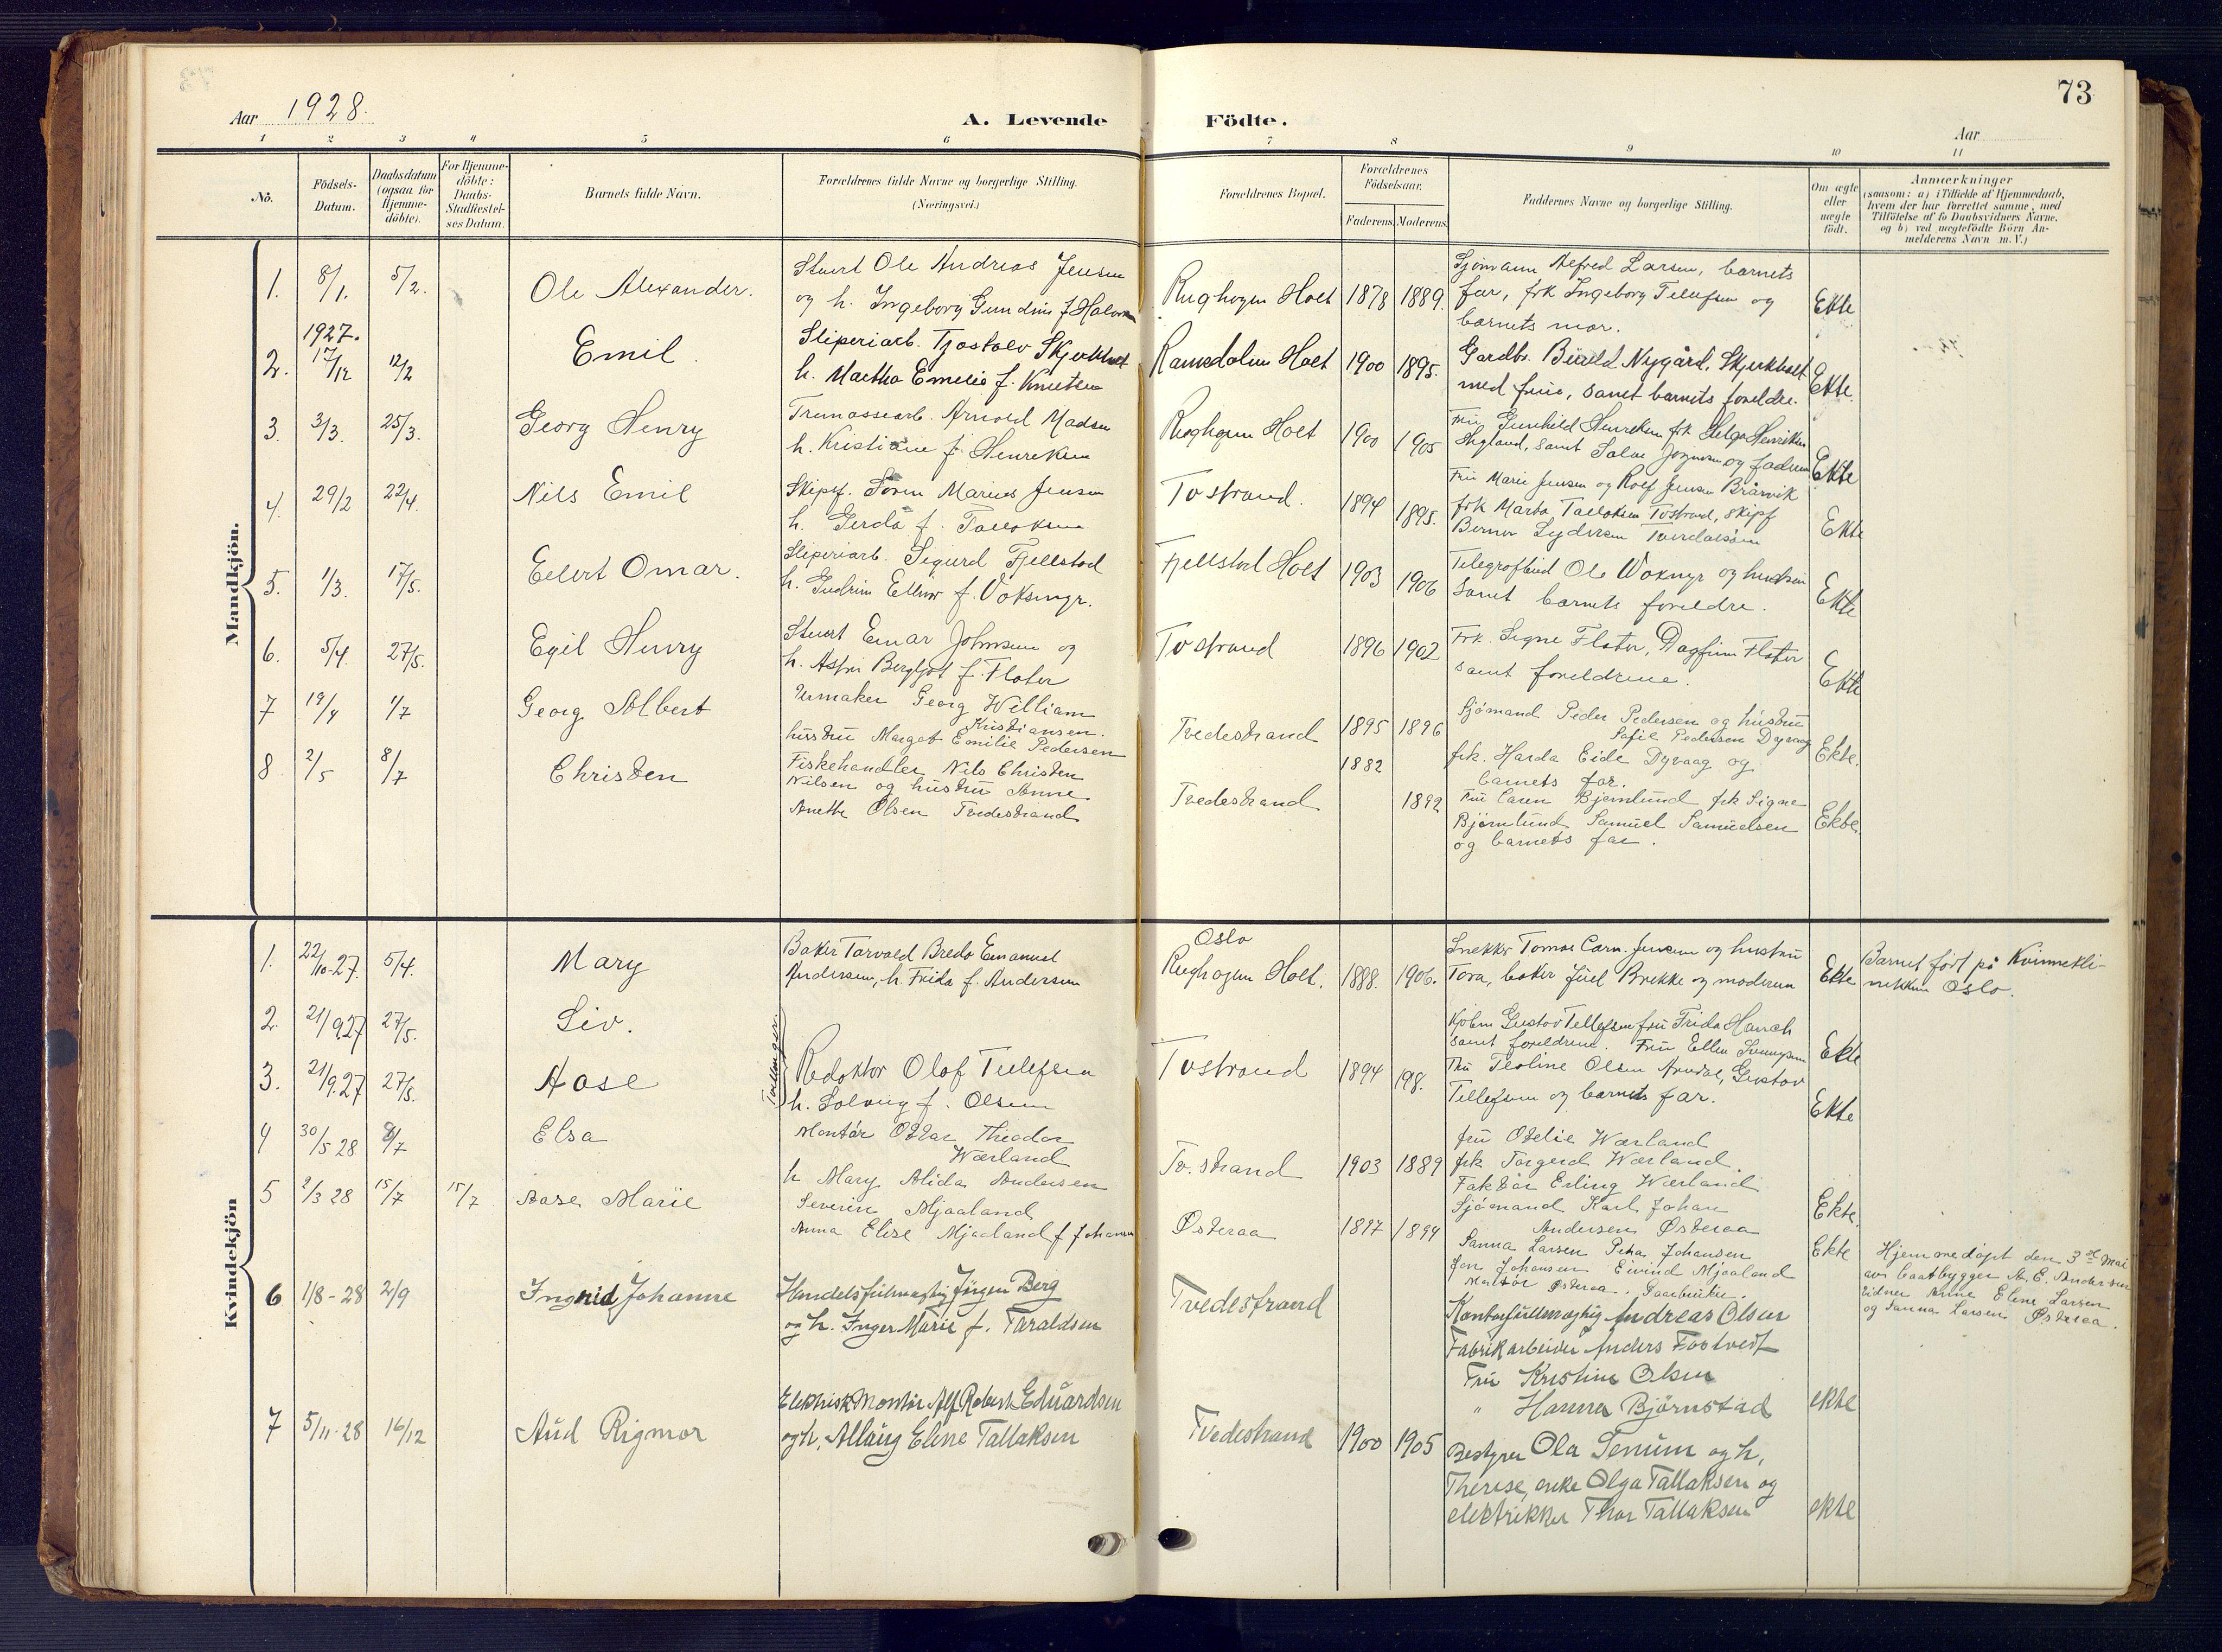 73
Aar 1928.
A. Levende Födte.
Aar
1 2 3 4 5 6 7 8 9 10 11
No.
Födsels-Datum.
Daabsdatum (ogsaa for Hjemme-döbte).
For Hjemme-döbte: Daabs-Stadfæstel-ses Datum.
Barnets fulde Navn.
Forældrenes fulde Navne og borgerlige Stilling.
(Næringsvei.)
Forældrenes Bopæl.
Forældrenes Födselsaar.
Faderens. Moderens.
Faddernes Navne og borgerlige Stilling.
Om ægte eller uægte födt.
Anmærkninger
(saasom: a) i Tilfælde af Hjemmedaab, hvem der har forrettet samme, med Tilföielse af to Daabsvidners Navne. og b) ved uægtefödte Börn An-melderens Navn m. V.)
Mandkjön.
1. 8/1. 5/2. Ole Alexander.
Stuert Ole Andreas Jensen
og h. Ingeborg Gundine f.
Holt 1878 1889.
Sjömann Alfred Larsen, barnets
far, frk Ingeborg Tellefsen og
barnets mor.
Ekte
1927.
2. 17/12 12/2 Emil.
Sliperiarb. Tjostolv Skjerkholt
h. Martha Emelie f. Knutsen
Ramsdalen Holt 1900 1895.
Gardbr. Nygård, Skjerkholt
med frue, samt barnets foreldre.
Ekte.
3. 3/3. 25/3. Georg Henry
Arnold Madsen
h. Kristiane f. Henriksen
Holt 1900 1905
Fru Gunhild Henriksen frk Helga Henriksen
samt og faderen
Ekte
4. 29/2 22/4. Nils Emil
Skipsf. Sören Marius Jensen
h. Gerda f. Talloksen
Tvestrand. 1894 1895.
Fru Marie Jensen og Rolf Jensen
frk Marta Talloksen Tvestrand, skipsf
Berner
Ekte
5. 1/3. 17/5. Eilert Omar.
Sliperiarb. Sigurd Fjellstad
h. Gudrun f.
Fjellstad Holt 1903 1906
Ole og hustru
samt barnets foreldre.
Ekte
6. 5/4. 27/5. Egil Henry
Stuert Einar Johnsen og
h. Astri Bergljot f. Flater
Tvestrand 1896 1902
Frk. Signe Flater, Dagfinn Flater
samt foreldrene.
Ekte
7 19/4 1/7 Georg Albert
Urmaker Georg William
Kristiansen.
hustru Margot Emilie Pedersen
Tvedestrand 1895 1896
Sjömand Peder Pedersen og hustru
Sofie Pedersen Dyvaag
frk. Harda Eide Dyvaag og
barnets far.
Ekte.
8 2/5 8/7 Christen
Fiskehandler Nils Christen
Nilsen og hustru Anne
Anette Olsen Tvedestrand
Tvedestrand 1882 1892
Fru Caren Bjørnlund frk Signe
Björnlund Samuel Samuelsen
og barnets far.
Ekte.
Kvindekjön
1. 22/10-27. 5/4. Mary
Baker Torvald Bredo Emanuel
Andersen, h. Frida f. Andersen
Oslo
Holt. 1888. 1906.
Snekker Tomas Jensen og hustru
Tora, baker Juel Brekke og moderen
Ekte
Barnet født på Kvinnekli-
nikken Oslo.
2. 21/9 27 27/5. Liv.
3. 21/9.27 27/5. Aase
Tvillinger.
Redaktör Olaf Tellefsen
h. Solveig f. Olsen
Tvestrand 1894 198.
Kjøbm Gustav Tellefsen fru Frida Hauch
samt foreldrene. Fru Ellen
Fru Teoline Olsen Arendal, Gustav
Tellefsen og barnets far.
Ekte
Ekte
4 30/5 28 8/7 Elsa
Montør Ottar Theodor
Wærland
h Mary Alida Andersen
Tv. strand 1903 1889
fru Otelie Wærland
frk Torgerd Wærland.
Faktör Erling Wærland
Ekte.
5 2/3 28 15/7 15/7 Aase Marie
Severin Mjaaland
Anna Elise Mjaaland f Johansen
Østeraa 1897 1894
Sjömand Karl Johan
Andersen Østeraa
Sanna Larsen Petra Johansen
Jon Johansen Eivind Mjaaland
Montör Østeraa.
Ekte
Hjemmedøpt den 3de Mai
av baatbygger A. E. Andersen
vidner Anne Elene Larsen
og Sanna Larsen Østeraa.
6 1/8-28 2/9 Ingrid Johanne
Handelsfuldmægtig Jörgen Berg
og h. Inger Marie f. Taraldsen
Tvedestrand
Kontorfuldmægtig Andreas Olsen
Fabrikarbeider Anders Fostvedt
Fru Kristine Olsen
" Hanna Björnstad
ekte
7 5/11-28 16/12 Aud Rigmor
Elektrisk Montör Alf Robert Eduardsen
og h. Allaug Elene Tallaksen
Tvedestrand 1900 1905
Bestyrer Ola Senum og h,
Therese, enke Olga Tallaksen og
elektriker Thor Tallaksen
ekte